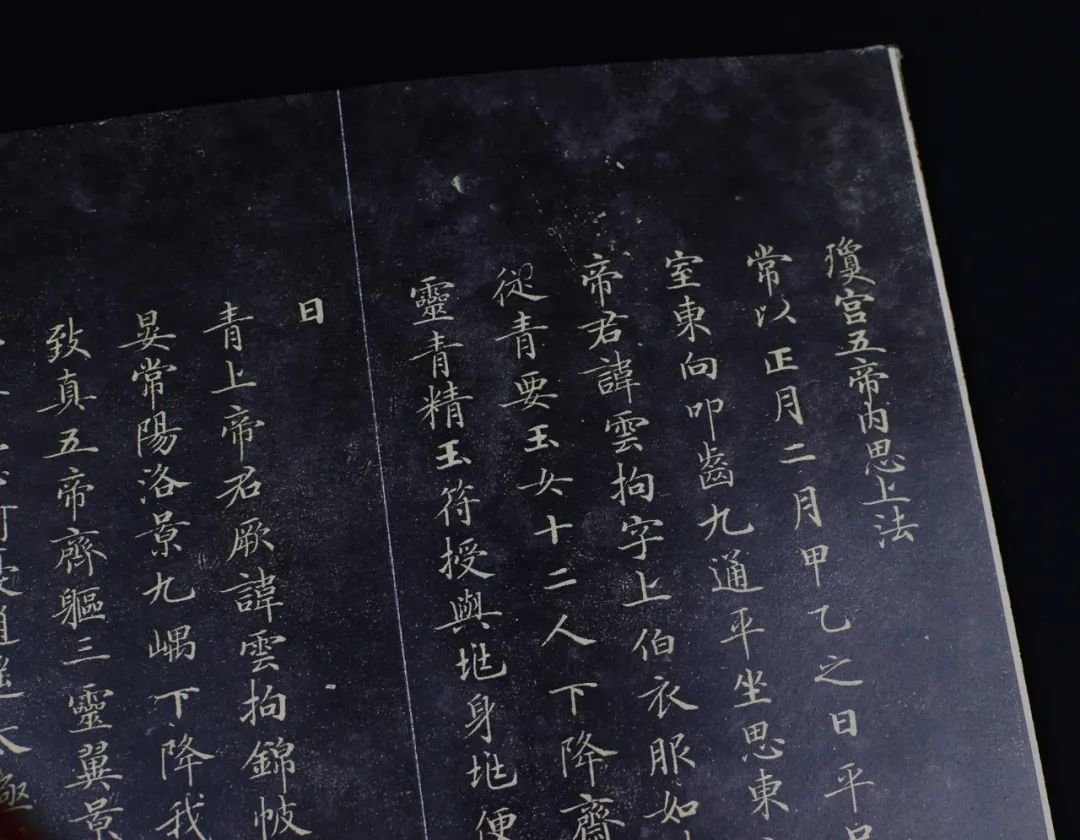 瓊宮五帝內思上法
常以正月二月甲乙之日平
室東向叩齒九通平坐思東
帝君諱雲拘字上伯衣服如
從青要玉女十二人下降齋
靈青精玉符授與兆身兆便
日
青上帝君厥諱雲拘錦帔
晏常陽洛景九嵎下降我
致真五帝齊軀三靈翼景